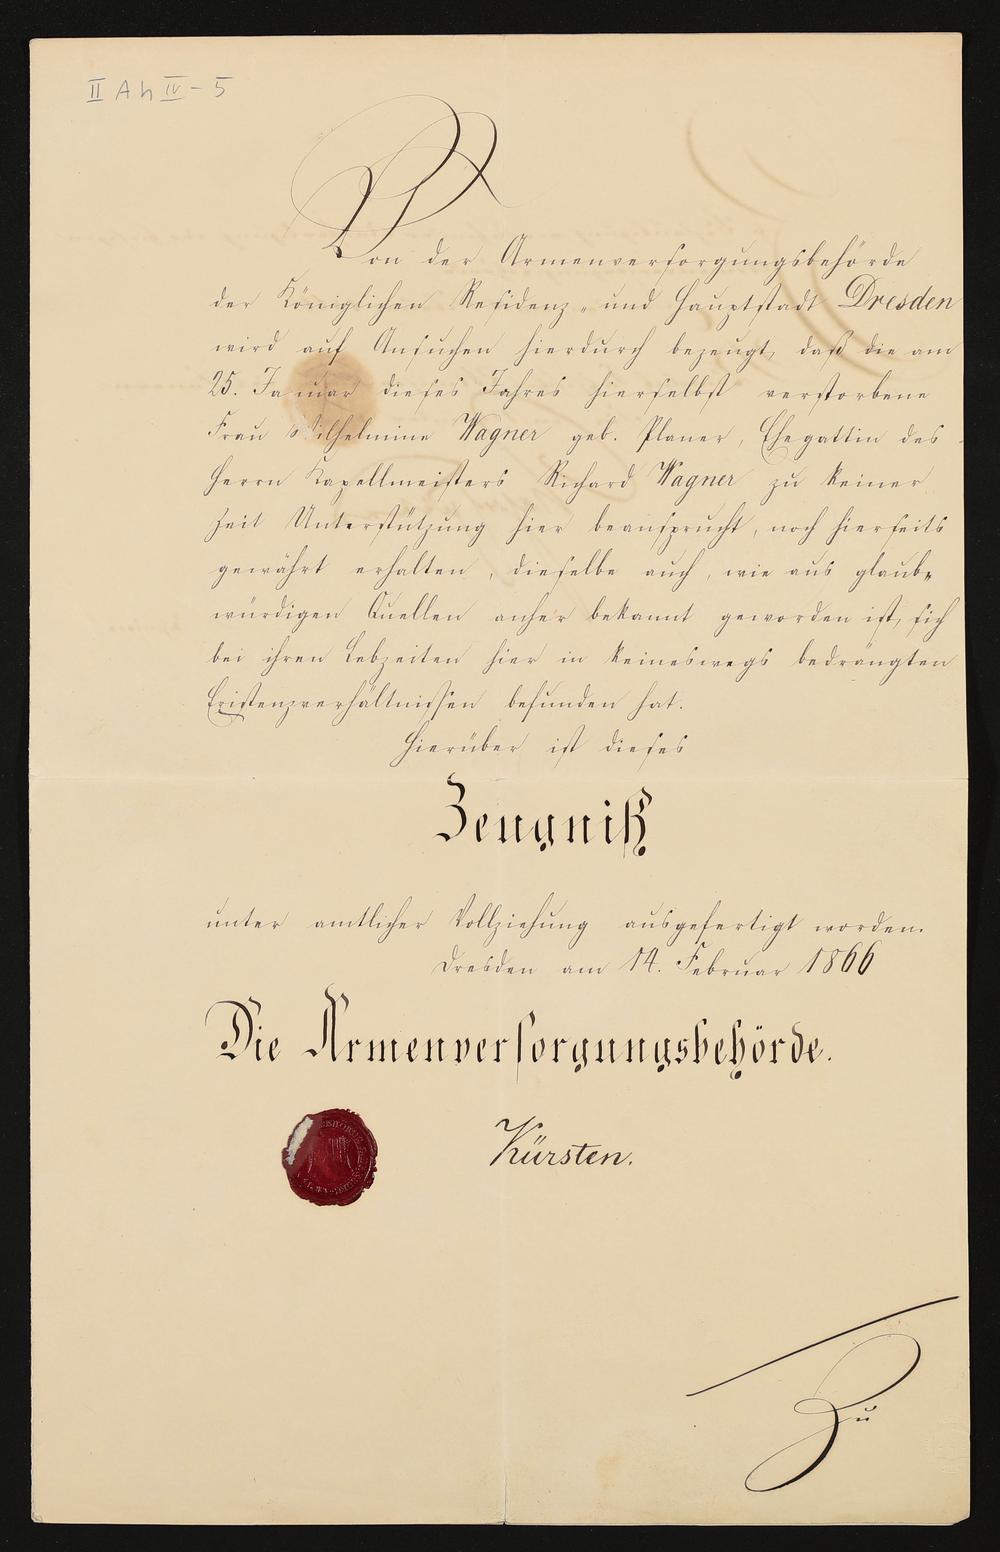 II Ah IV - 5
Von der Armenversorgungsbehörde
der Königlichen Residenz- und Hauptstadt Dresden
wird auf Ansuchen hierdurch bezeugt, daß die am
25. Januar dieses Jahres hierselbst verstorbene
Frau Wilhelmine Wagner geb. Planer, Ehegattin des
Herrn Kapellmeisters Richard Wagner zu keiner
Zeit Unterstützung hier beansprucht, noch hierseits
gewährt erhalten, dieselbe auch, wie aus glaub-
würdigen Quellen anher bekannt geworden ist, sich
bei ihren Lebzeiten hier in keineswegs bedrängten
Existenzverhältnissen befunden hat.
Hierüber ist dieses
Zeugniß
unter amtlicher Vollziehung ausgefertigt worden.
Dresden am 14. Februar 1866
Die Armenversorgungsbehörde.
Kürsten.
Zu